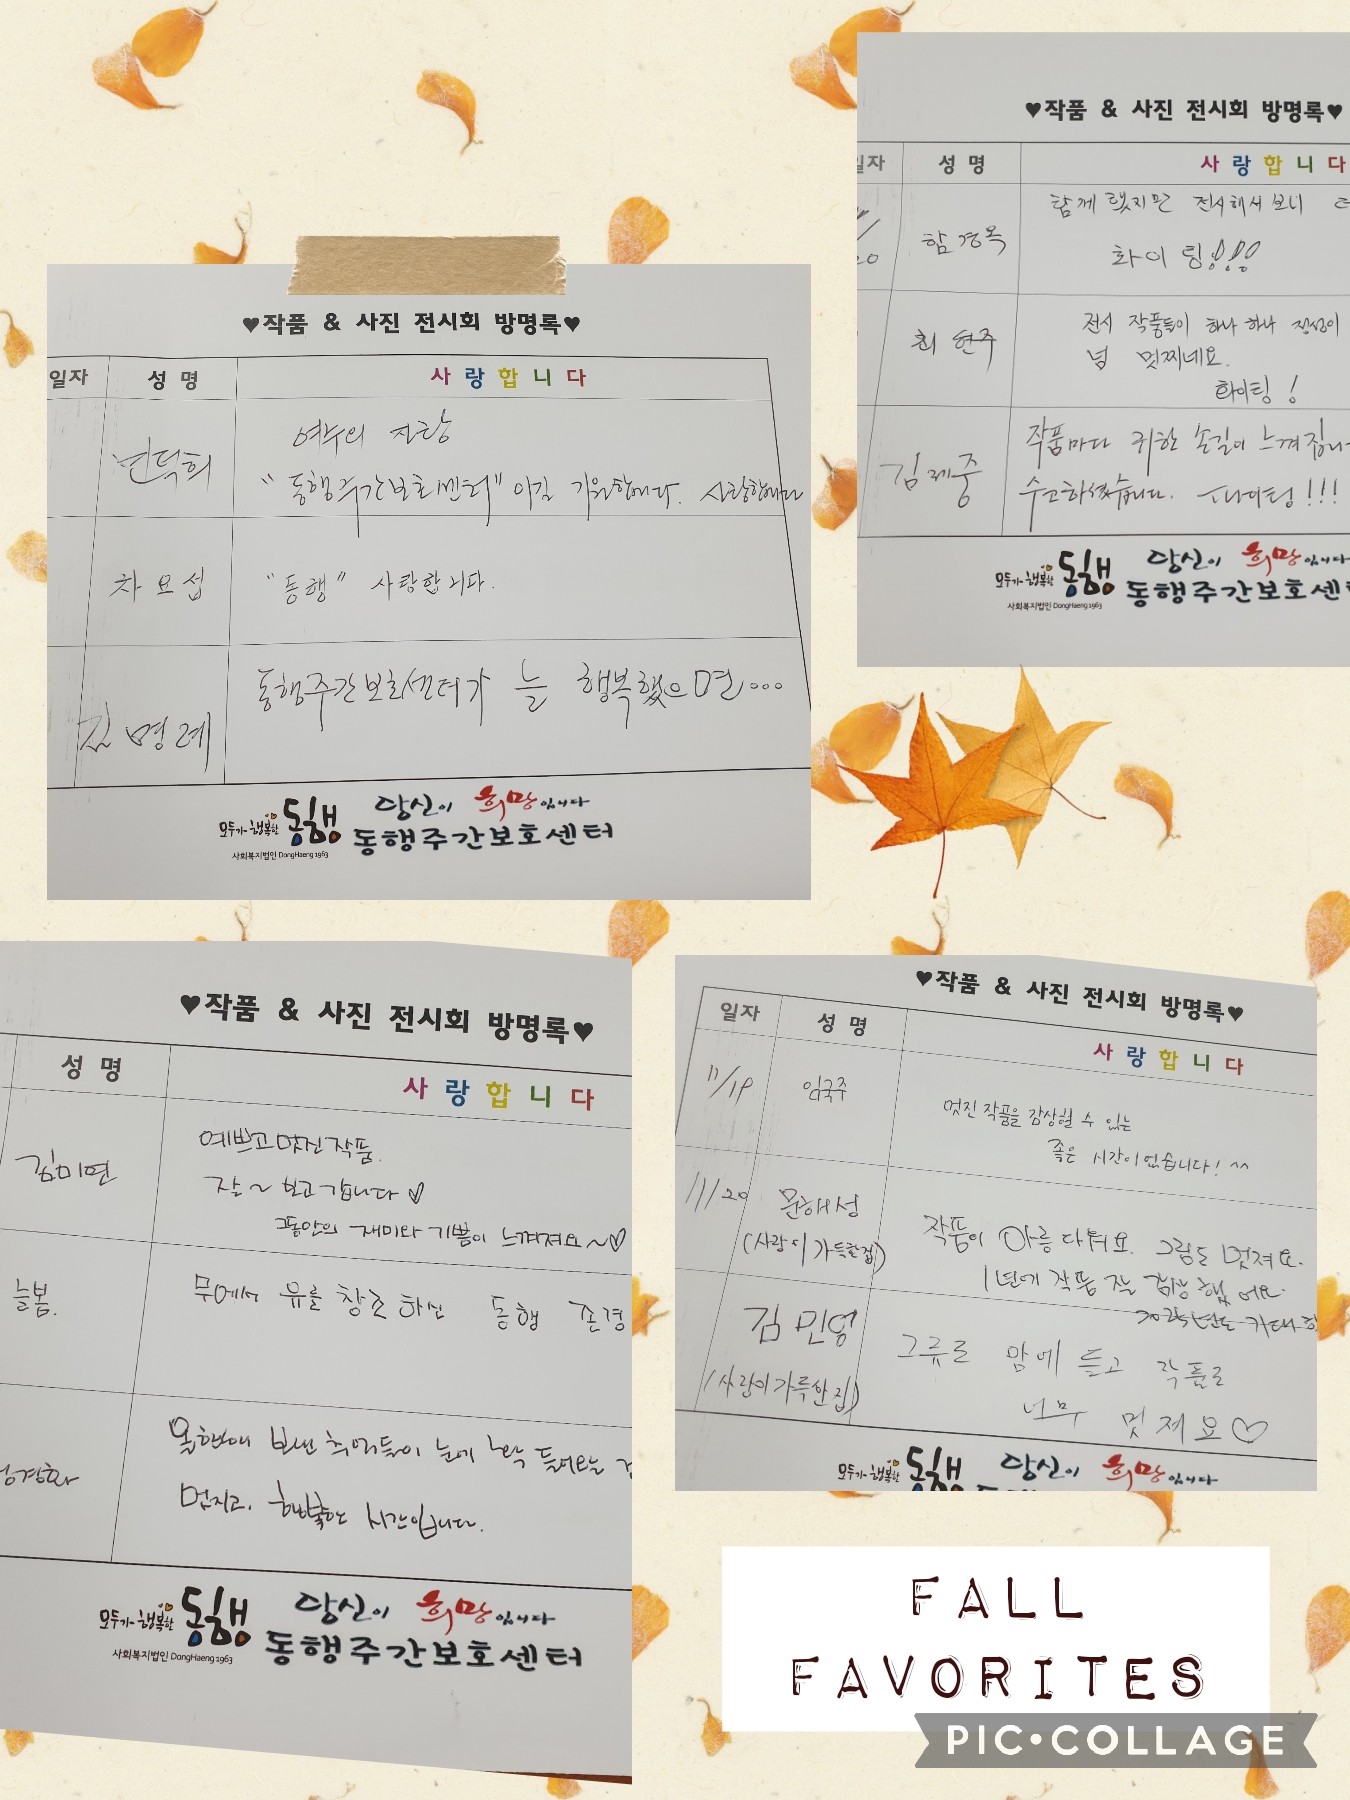 ♥작품 & 사진 전시회 방명록♥
일자 성 명 사랑합니다
여수의 자랑
"동행주간보호센터" 이길 기원합니다. 사랑합니다
차요섭 "동행" 사랑합니다.
김명례 동행주간보호센터가 늘 행복했으면...
모두가 행복한 동행
사회복지법인 DongHaeng 1963
당신이 희망입니다
동행주간보호센터
♥작품 & 사진 전시회 방명록♥
일자 성 명 사랑합니다
20 함경옥 함께 했지만 전시해서 보니
화이팅!!!
최현주 전시 작품들이 하나 하나 정성이
넘 멋찌네요.
화이팅!
작품마다 귀한 손길이 느껴집니
수고하셨습니다. 화이팅!!!
모두가 행복한 동행
사회복지법인 DongHaeng 1963
당신이 희망입니다
동행주간보호센
♥작품 & 사진 전시회 방명록♥
성 명 사랑합니다
김미연 예쁘고 멋진 작품.
잘~ 보고 갑니다♡
그동안의 재미와 기쁨이 느껴져요~♡
늘봄. 무에서 유를 창조하신 동행 존경
올한해 보낸 추억들이 눈에
멋지고, 행복한 시간이입니다.
모두가 행복한 동행
사회복지법인 DongHaeng 1963
당신이 희망입니다
동행주간보호센터
♥작품 & 사진 전시회 방명록♥
일자 성 명 사랑합니다
11/19 임국주 멋진 작품을 감상할 수 있는
좋은 시간이었습니다! ^^
11/20 문해성 작품이 아름다워요. 그림도 멋져요.
(사랑이 가득한집) 1년에 작품 잘 감상했어요.
김민영 그류로 맘에 들고 작품로
(사랑이가득한집) 너무 멋제요♡
모두가 행복한 동행
당신이 희망입니다
FALL
FAVORITES
PIC•COLLAGE